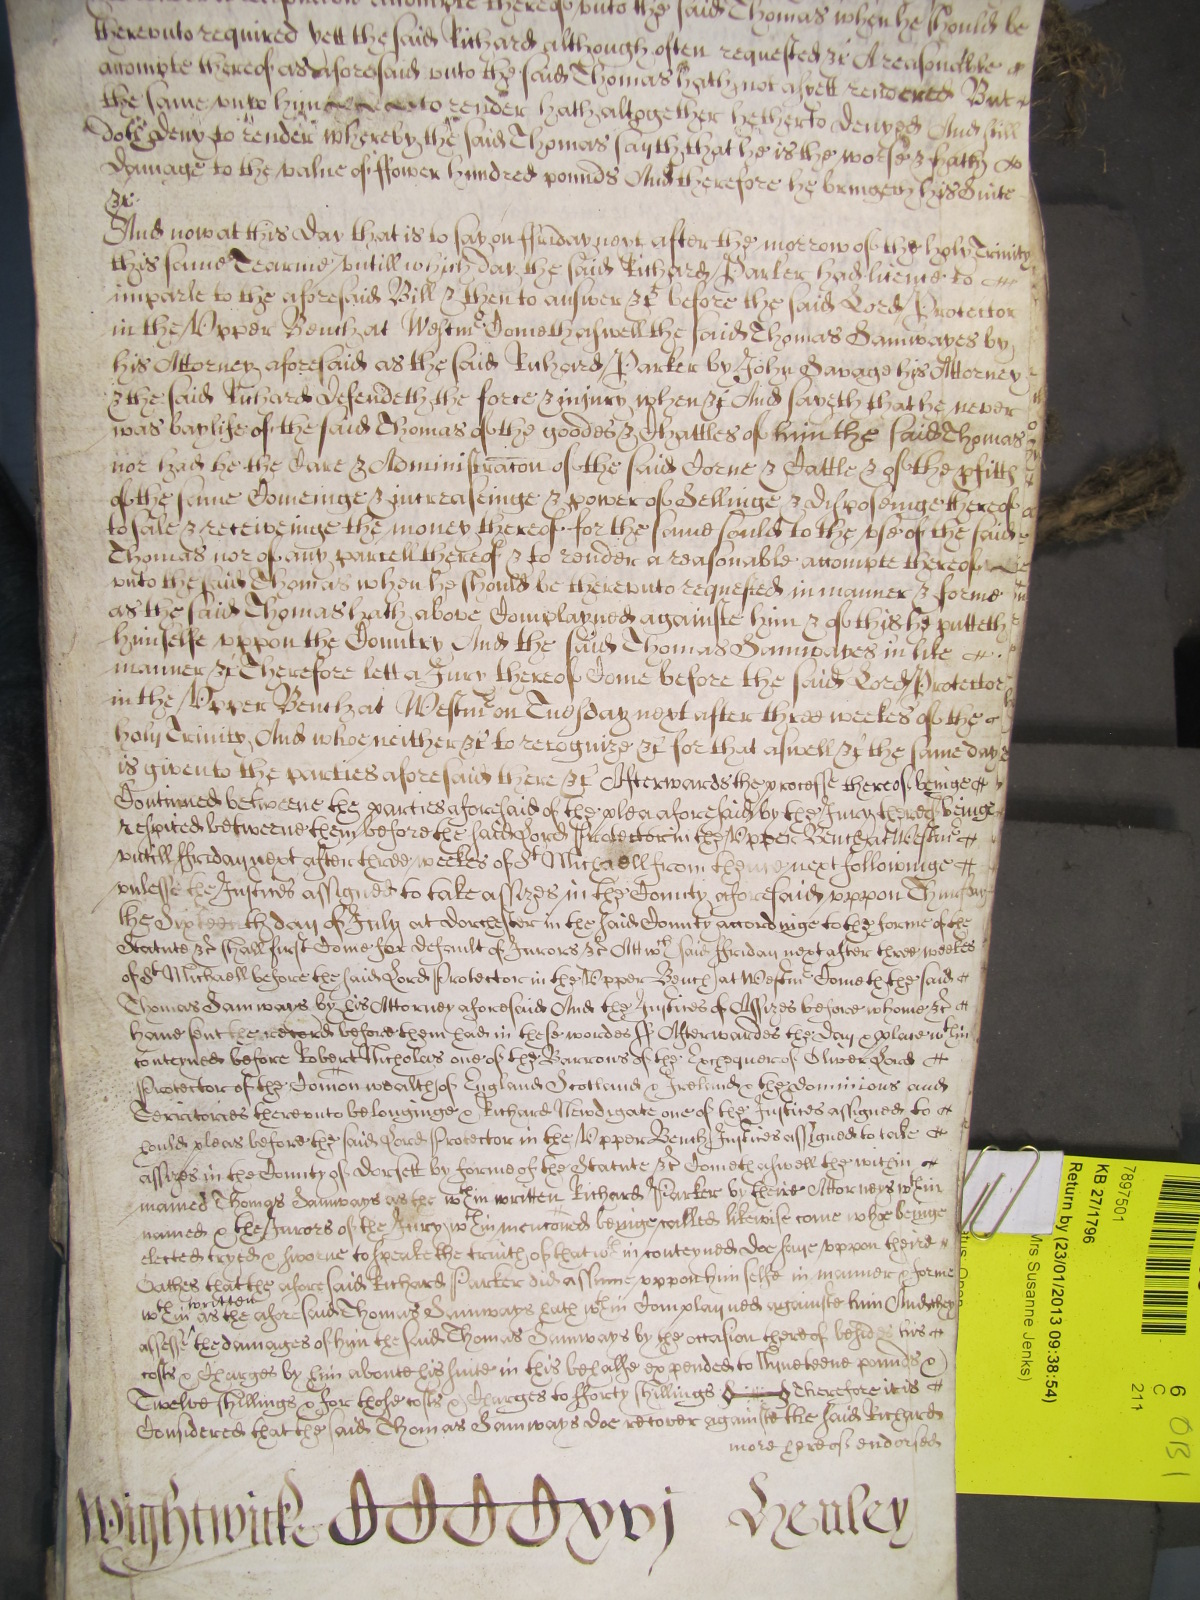 accompte thereof unto the said Thomas when he should be
thereunto required yett the said Richard although often requested &c A reasonable
accompte thereof as aforesaid unto the said Thomas hath not as yett rendered But
the same unto him to render hath altogether hetherto denyed And still
doth deny to render whereby the said Thomas sayth that he is the worse & hath
damage to the value of ffower hundred pounds And therefore he bringeth his Suite
&c
And now at this day that is to say on ffriday next after the morrow of the holy Trinity
this same Tearme untill which day the said Richard Parker had licence to
imparle to the aforesaid Bill & then to answer &c before the said Lord Protector
in the Upper Bench at Westmr Cometh aswell the said Thomas Samwayes by
his Attorney aforesaid as the said Richard Parker by John Savage his Attorney
& the said Richard defendeth the force & injury when &c And sayeth that he never
was baylife of the said Thomas of the goodes & Chattles of him the said Thomas
nor had he the Care & Administracon of the said Corne & Cattle & of the pfitts
of the same Comeinge & increaseinge & power of Sellinge & disposeinge thereof
to sale & receiveinge the money thereof for the same sould to the use of the said
Thomas nor of any parcell thereof & to render a reasonable accompte thereof
unto the said Thomas when he should be thereunto requested in manner & forme
as the said Thomas hath above Complayned againste him & of this he putteth
himselfe uppon the Country And the said Thomas Samwayes in like
manner &c Therefore lett a Jury thereof Come before the said Lord Protector
in the Upper Bench at Westmr on Tuesday next after three weekes of the
holy Trinity And whoe neither &c to recognize &c for that aswell &c the same day
is given to the parties aforesaid there &c Afterwards the processe thereof beinge
Continued betweene the parties aforesaid of the plea aforesaid by the Jury thereof beinge
respited betweene them before the said Lord Protector in the Upper Bench at Westmr
untill ffriday next after three weekes of St Michaell from thence next followinge
unlesse the Justices assigned to take assizes in the County aforesaid uppon Thursday
the Sixteenth day of July at dorchester in the said County accordinge to the forme of the
Statute &c shall first Come for default of Jurors &c Att wch said ffriday next after three weekes
of St Michaell before the said Lord Protector in the Upper Bench at Westmr Cometh the said
Thomas Samways by his Attorney aforesaid And the Justices of Assizes before whome &c
have sent the record before them had in these wordes ss Afterwardes the day & place wthin
conteyned before Robert Nicholas one of the Barrons of the Exchequer of Oliver Lord
Protector of the Comon wealth of England Scotland & Ireland & the dominions and
Territories thereunto belonginge & Richard Newdigate one of the Justices assigned to
hould pleas before the said Lord Protector in the Upper Bench Justices assigned to take
assizes in the County of dorsett by forme of the Statute &c Cometh aswell the within
named Thomas Samways as the wthin written Richard Parker by their Attorneys wthin
named & the Jurors of the Jury wthin mentioned beinge called likewise come whoe beinge
elected tryed & sworne to speake the truith of that wthin conteyned doe saye uppon theire
Oathes that the aforesaid Richard Parker did assume uppon him selfe in manner & forme
written
wthin as the afore said Thomas Samways hath wthin Complayned againste him And they
assesse the damages of him the said Thomas Samways by the occasion thereof besides his
costs & Charges by him aboute his suite in this behalfe expended to Nyneteene pounds &
Twelve shillings & for those costs & Charges to fforty shillings Therefore it is
Considered that the said Thomas Samways doe recover againste the said Richard
more hereof endorsed
Wightwicke CCCCxvj Henley
7897501
KB 27/1796
Return by (23/01/2013 09:38:54)
Mrs Susanne Jenks)
6
C
211